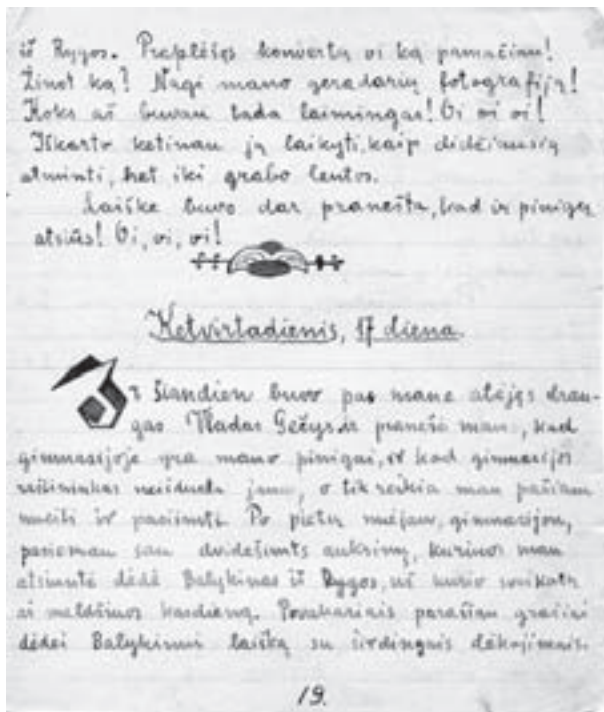 iš Rygos. Praplėšęs konvertą oi ką pamačiau!
Žinot ką? Nagi mano geradarių fotografiją!
Koks aš buvau tada laimingas! Oi oi oi!
Iškarto ketinau ją laikyti, kaip didžiausią
atmintį, bet iki grabo lentos.
Laiške buvo dar pranešta, kad ir pinigų
atsiūs! Oi, oi, oi!
Ketvirtadienis, 17 diena.
Ir šiandien buvo pas mane atėjęs drau-
gas Vladas Gečys ir pranešė man, kad
gimnazijoje yra mano pinigai, ir kad gimnazijos
raštininkas neišduoda jam, o tik reikia man pačiam
nueiti ir pasiimti. Po pietų nuėjau gimnazijon,
pasiėmiau sau dvidešimts auksinų, kuriuos man
atsiuntė dėdė Balykinas iš Rygos, už kurio sveikatą
aš meldžiuos kasdieną. Povakariais parašiau gražiai
dėdei Balykinui laišką su širdingais dėkojimais.
19.